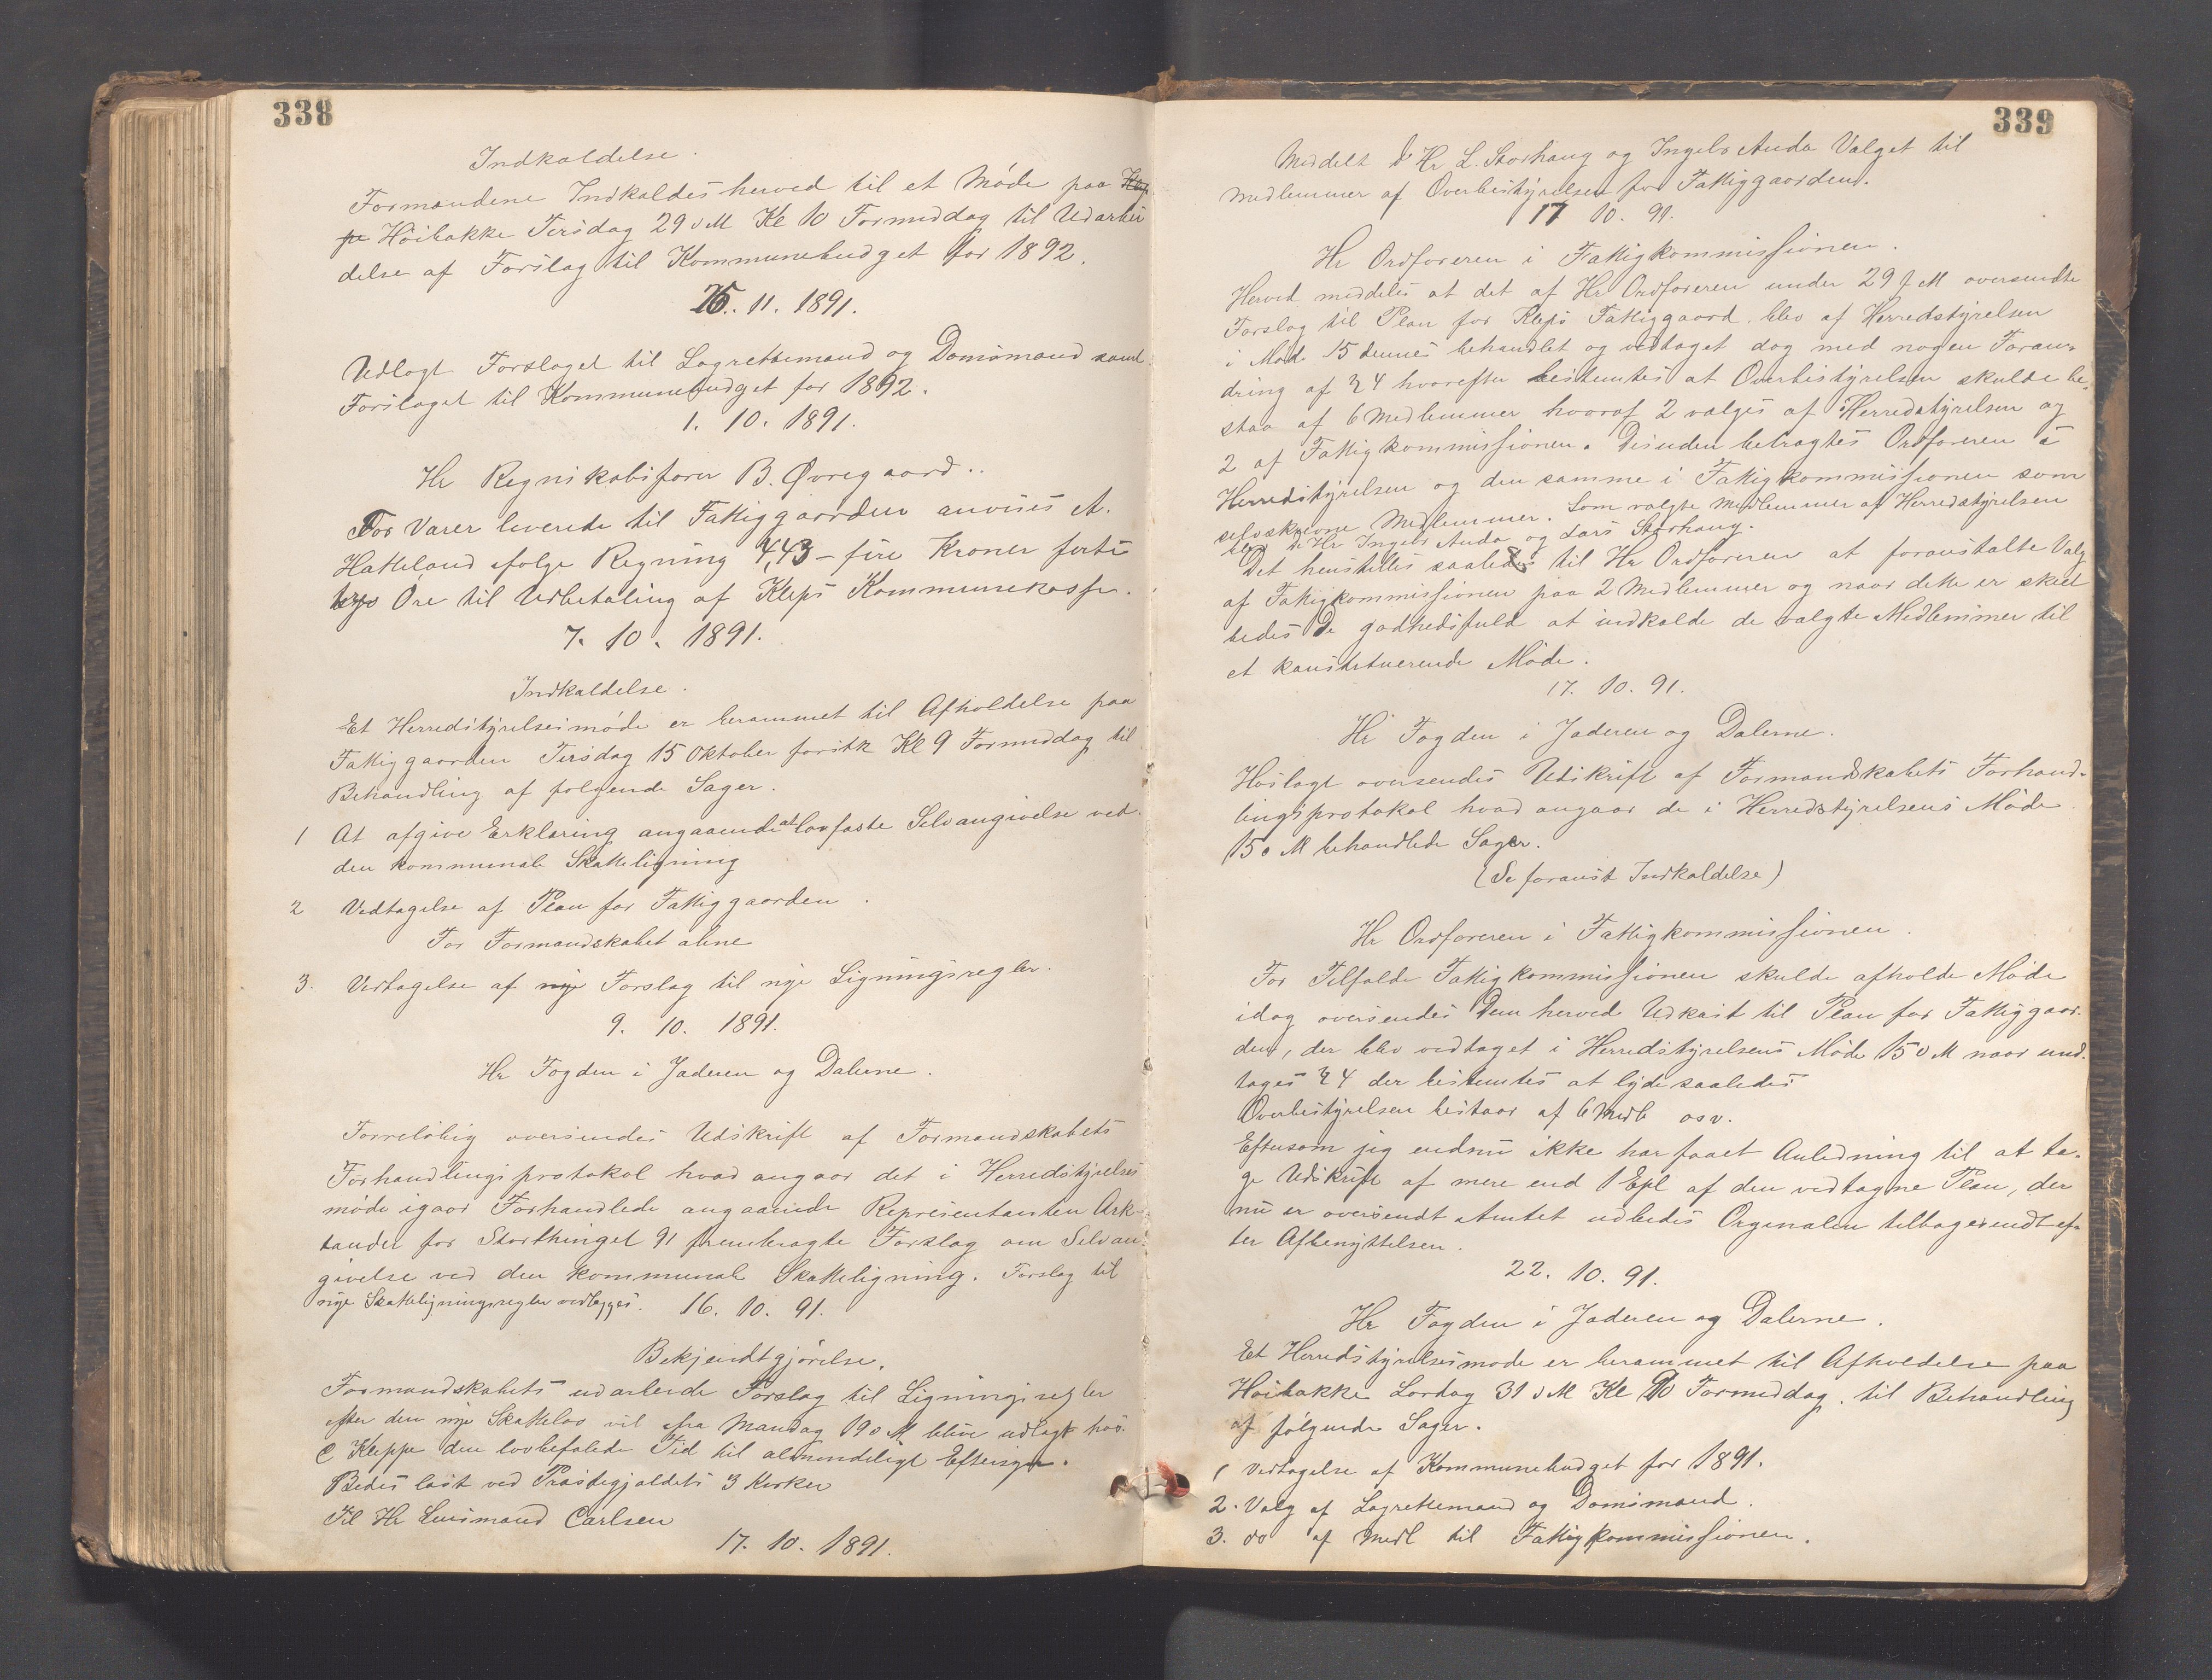 338
Indkaldelse.
Formændene Indkaldes herved til et Møde paa Klep
pe Høibakke Tirsdag 29 d M Kl 10 Formiddag til Udarbei
delse af Forslag til Kommunebudget for 1892.
25. 11. 1891.
Udlagt Forslaget til Lagrettemænd og Domsmænd samt
Forslaget til Kommunebudget for 1892.
1. 10. 1891.
Hr Regnskabsfører B. Øvregaard..
For Varer leverede til Fattiggaarden anvises A.
Hatteland ifølge Regning 4,43 – fire Kroner forti
tre Øre til Udbetaling af Kleps Kommunekasse.
7. 10. 1891.
Indkaldelse.
Et Herredstyrelsesmøde er berammet til Afholdelse paa
Fattiggaarden Tirsdag 15 Oktober førstk Kl 9 Formiddag til
Behandling af følgende Sager.
1 At afgive Erklæring angaaende at lovfæste Selvangivelse ved
den kommunale Skatteligning
2 Vedtagelse af Plan for Fattiggaarden.
For Formandskabet alene
3. Vedtagelse af nye Forslag til nye Ligningsregler.
9. 10. 1891.
Hr Fogden i Jæderen og Dalerne.
Forreløbig oversendes Udskrift af Formandskabets
Forhandlingsprotokol hvad angaar det i Herredstyrelses
møde igaar Forhandlede angaaende Repræsentanten Ark-
tander for Storthinget 91 frembragte Forslag om Selvan-
givelse ved den kommunale Skatteligning. Forslag til
nye Skatteligningsregler vedlægges. 16. 10. 91.
Bekjendtgjørelse.
Formandskabets udarbeide Forslag til Ligningsregler
efter den nye Skattelov vil fra Mandag 19 d M blive udlagt hos
C Kleppe den lovbefalede Tid til almindeligt Eftersyn.
Bedes læst ved Præstegjældets 3 Kirker
Til Hr Lensmand Carlsen
17. 10. 1891.
339
Meddelt d'Hr L. Storhaug og Ingebr Anda Valget til
Medlemmer af Overbestyrelsen for Fattiggaarden.
17 10. 91.
Hr Ordføreren i Fattigkommissionen.
Herved meddeles at det af Hr Ordføreren under 29 f M oversendte
Forslag til Plan for Kleps Fattiggaard blev af Herredstyrelsen
i Mød. 15 dennes behandlet og vedtaget dog med nogen Foran-
dring af § 4 hvorefter bestemtes at Overbestyrelsen skulde be-
staa af 6 Medlemmer hvoraf 2 vælges af Herredstyrelsen og
2 af Fattigkommissionen. Desuden betragtes Ordføreren i
Herredstyrelsen og den samme i Fattigkommissionen som
selvskrevne Medlemmer. Som valgte Medlemmer af Herredstyrelsen
blev d'Hr Ingebr Anda og Lars Storhaug.
Det henstilles saaledes til Hr Ordføreren at foranstalte Valg
af Fattigkommissionen paa 2 Medlemmer og naar dette er skeet
bedes De godhedsfuld at indkalde de valgte Medlemmer til
et konstituerende Møde.
17. 10. 91.
Hr Fogden i Jæderen og Dalerne.
Hoslagt oversendes Udskrift af Formandskabets Forhand-
lingsprotokol hvad angaar de i Herredstyrelsens Møde
15 d M behandlede Sager.
(Se foranst Indkaldelse)
Hr Ordføreren i Fattigkommissionen.
For Tilfælde Fattigkommissionen skulde afholde Møde
idag oversendes Dem herved Udkast til Plan for Fattiggaar-
den, der blev vedtaget i Herredstyrelsens Møde 15 d M naar und-
tages § 4 der bestemtes at lyde saaledes
Overbestyrelsen bestaar af 6 Medl osv.
Eftersom jeg endnu ikke har faaet Anledning til at ta-
ge Udskrift af mere end 1 Expl af den vedtagne Plan, der
nu er oversendt Amtet udbedes Orginalen tilbagesendt ef-
ter Afbenyttelsen.
22. 10. 91.
Hr Fogden i Jæderen og Dalerne.
Et Herredstyrelsesmøde er berammet til Afholdelse paa
Høibakke Lørdag 31 d M Kl 10 Formiddag til Behandling
af følgende Sager.
1 Vedtagelse af Kommunebudget for 1891.
2. Valg af Lagrettemænd og Domsmænd.
3. do af Medl til Fattigkommissionen.